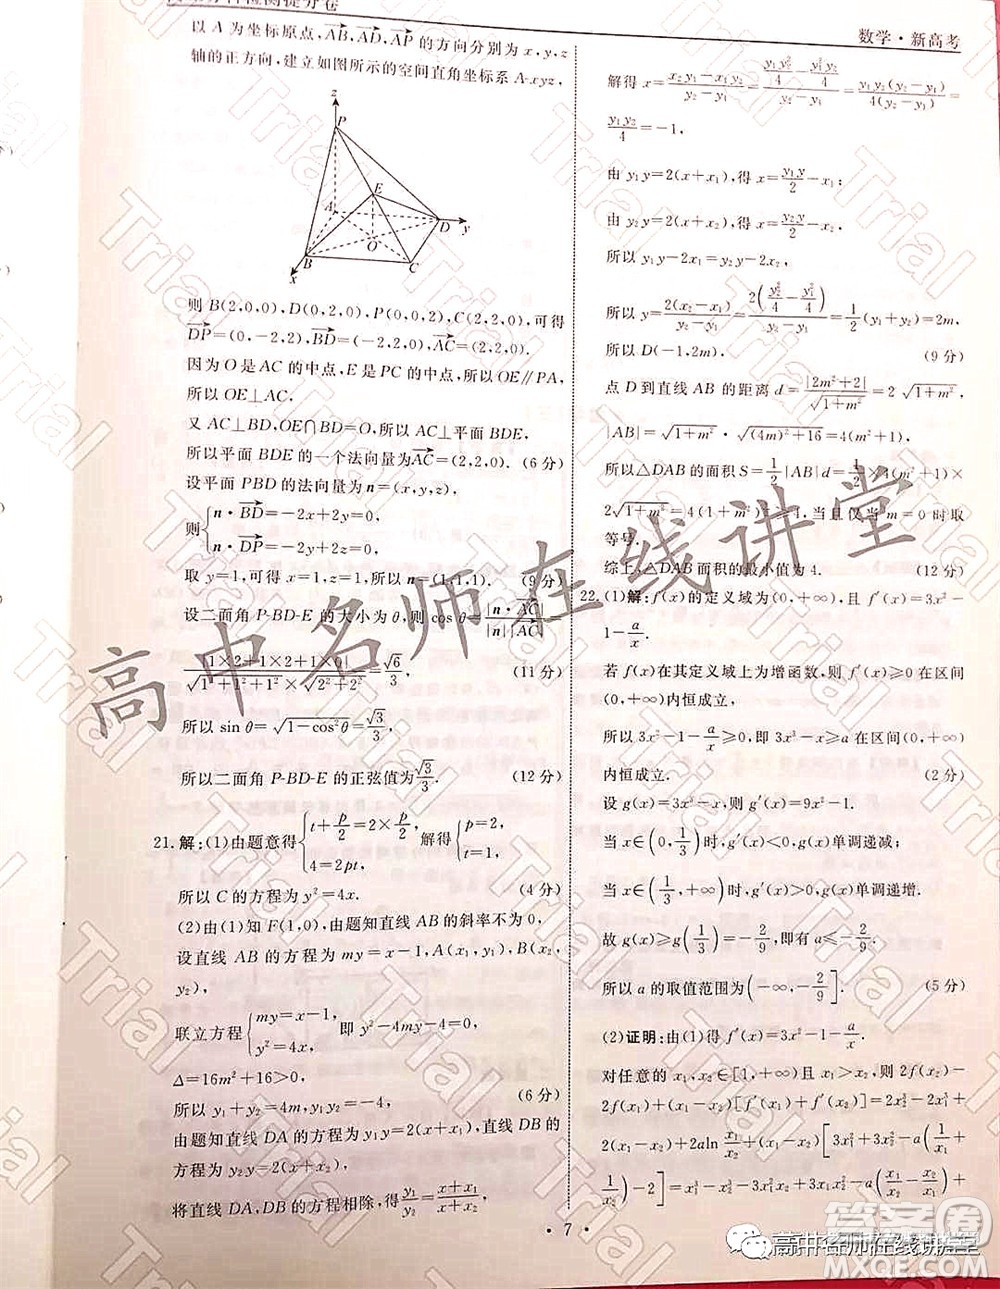 数学·新高考
以 A 为坐标原点，$\overrightarrow{AB}$，$\overrightarrow{AD}$，$\overrightarrow{AP}$ 的方向分别为 x，y，z
轴的正方向，建立如图所示的空间直角坐标系 A-xyz，
z
P
E
A
D
y
O
B
C
x
则 B(2,0,0)，D(0,2,0)，P(0,0,2)，C(2,2,0)，可得
$\overrightarrow{DP}$=(0,-2,2)，$\overrightarrow{BD}$=(-2,2,0)，$\overrightarrow{AC}$=(2,2,0).
因为 O 是 AC 的中点，E 是 PC 的中点，所以 OE∥PA，
所以 OE⊥AC.
又 AC⊥BD，OE∩BD=O，所以 AC⊥平面 BDE，
所以平面 BDE 的一个法向量为$\overrightarrow{AC}$=(2,2,0). (6 分)
设平面 PBD 的法向量为 n=(x,y,z)，
则 {n·$\overrightarrow{BD}$=-2x+2y=0,
n·$\overrightarrow{DP}$=-2y+2z=0,
取 y=1，可得 n=(1,1,1). (9 分)
设二面角 P-BD-E 的大小为 θ，则 cos θ=|n·$\overrightarrow{AC}$|/(|n||$\overrightarrow{AC}$|)=
|1×2+1×2+1×0|/(√(1²+1²+1²)×√(2²+2²+0²))=√6/3， (11 分)
所以 sin θ=√(1-cos²θ)=√3/3，
所以二面角 P-BD-E 的正弦值为√3/3. (12 分)
21. 解：(1)由题意得 {t+p/2=2×p/2, 4=2pt, 解得 {p=2, t=1,
所以 C 的方程为 y²=4x. (4 分)
(2)由(1)知 F(1,0)，由题知直线 AB 的斜率不为 0，
设直线 AB 的方程为 my=x-1，A(x₁,y₁)，B(x₂,
y₂)，
联立方程 {my=x-1, y²=4x, 即 y²-4my-4=0，
Δ=16m²+16>0， (6 分)
所以 y₁+y₂=4m，y₁y₂=-4，
由题知直线 DA 的方程为 y₁y=2(x+x₁)，直线 DB 的
方程为 y₂y=2(x+x₂)，
将直线 DA，DB 的方程相除，得 y₁/y₂=(x+x₁)/(x+x₂)，
解得 x=(x₂y₁-x₁y₂)/(y₂-y₁)=(y₁y₂²/4-y₂y₁²/4)/(y₂-y₁)=y₁y₂(y₂-y₁)/(4(y₂-y₁))=
y₁y₂/4=-1，
由 y₁y=2(x+x₁)，得 x=y₁y/2-x₁；
由 y₂y=2(x+x₂)，得 x=y₂y/2-x₂，
所以 y₁y-2x₁=y₂y-2x₂，
所以 y=2(x₂-x₁)/(y₂-y₁)=2(y₂²/4-y₁²/4)/(y₂-y₁)=1/2(y₁+y₂)=2m，
所以 D(-1,2m). (9 分)
点 D 到直线 AB 的距离 d=|2m²+2|/√(1+m²)=2√(1+m²)，
|AB|=√(1+m²)·√((4m)²+16)=4(1+m²)，
所以△DAB 的面积 S=1/2|AB|d=1/2×4(1+m²)×
2√(1+m²)=4(1+m²)√(1+m²)≥4，当且仅当 m=0 时取
等号.
综上，△DAB 面积的最小值为 4. (12 分)
22. (1)解：f(x)的定义域为(0,+∞)，且 f′(x)=3x²-
1-a/x.
若 f(x)在其定义域上为增函数，则 f′(x)≥0 在区间
(0,+∞)内恒成立，
所以 3x²-1-a/x≥0，即 3x³-x≥a 在区间(0,+∞)
内恒成立. (2 分)
设 g(x)=3x³-x，则 g′(x)=9x²-1.
当 x∈(0,1/3)时，g′(x)<0，g(x)单调递减；
当 x∈(1/3,+∞)时，g′(x)>0，g(x)单调递增.
故 g(x)≥g(1/3)=-2/9，即有 a≤-2/9.
所以 a 的取值范围为(-∞,-2/9]. (5 分)
(2)证明：由(1)得 f′(x)=3x²-1-a/x.
对任意的 x₁，x₂∈[1,+∞)，且 x₁>x₂，则 2f(x₂)-
2f(x₁)+(x₁-x₂)[f′(x₁)+f′(x₂)]=2x₂³-2x₁³+
2(x₁-x₂)+2aln x₁/x₂+(x₁-x₂)[3x₁²+3x₂²-a(1/x₁+
1/x₂)-2]=x₁³-x₂³-3x₁²x₂+3x₁x₂²-a(x₁/x₂-x₂/x₁)
·7·
高中名师在线讲堂
Trial
答案圈
MXQE.COM